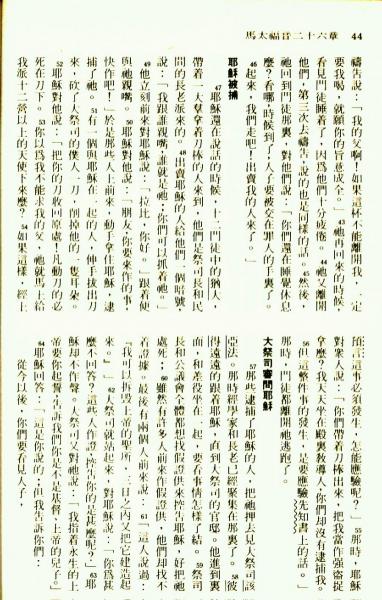 馬太福音二十六章 44
禱告說：「我的父啊！如果這杯不能離開我，一定
要我喝，就願你的旨意成全。」43祂再回來的時候，
看見門徒睡着了，因爲他們十分疲倦。44祂又離開
他們，第三次去禱告，說的也是同樣的話。45然後，
祂回到門徒那裏，對他們說：「你們還在睡覺休息
麼？看哪，時候到了！人子要被交在罪人的手裏了。
46起來，我們走吧！出賣我的人來了。」
耶穌被捕
47耶穌還在說話的時候，十二門徒中的猶大，
帶着一大羣拿着刀棒的人來到，他們是祭司長和民
間的長老派來的。48出賣耶穌的人給他們一個暗號，
說：「我跟誰親嘴，誰就是祂；你們可以抓着祂。」
49他立刻前來對耶穌說：「拉比，你好。」跟着便
與祂親嘴。50耶穌對他說：「朋友，你要來作的事，
快作吧！」於是那些人上前來，動手拿住耶穌，逮
捕了祂。51有一個與耶穌在一起的人，伸手拔出刀
來，砍了大祭司的僕人一刀，削掉他的一隻耳朵。
52耶穌對他說：「把你的刀收回原處！凡動刀的必
死在刀下。53你以爲我不能求我的父，祂就馬上給
我派十二營以上的天使下來麼？54如果這樣，經上
預言這事必須發生，怎能應驗呢？」55那時，耶穌
對衆人說：「你們帶着刀棒出來，把我當作強盜捉
拿麼？我天天坐在殿裏教導人，你們却沒有逮捕我。
56但這整件事的發生，是要應驗先知書上的話。」
那時，門徒都離開祂逃跑了。
大祭司審問耶穌
57那些逮捕了耶穌的人，把祂押去見大祭司該
亞法。那時經學家和長老已經聚集在那裏了。58彼
得遠遠的跟着耶穌，直到大祭司的官邸。他進到裏
面，和差役坐在一起，要看事情怎樣了結。59祭司
長和公議會全體都尋找假證供來控告耶穌，好把祂
處死；60雖然有許多人前來作假證供，他們却找不
着證據。最後有兩個人前來說：61「這人說過：
『我可以拆毀上帝的聖所，三日之內又把它建造起
來。』」62大祭司就站起來，對耶穌說：「你爲甚
麼不回答？這些人作證控告你的是甚麼呢？」63耶
穌却不作聲。大祭司又對祂說：「我指着永生的上
帝要你起誓告訴我們，你是不是基督，上帝的兒子。」
64耶穌回答：「這是你說的；但我告訴你們：
從今以後，你們要看見人子，